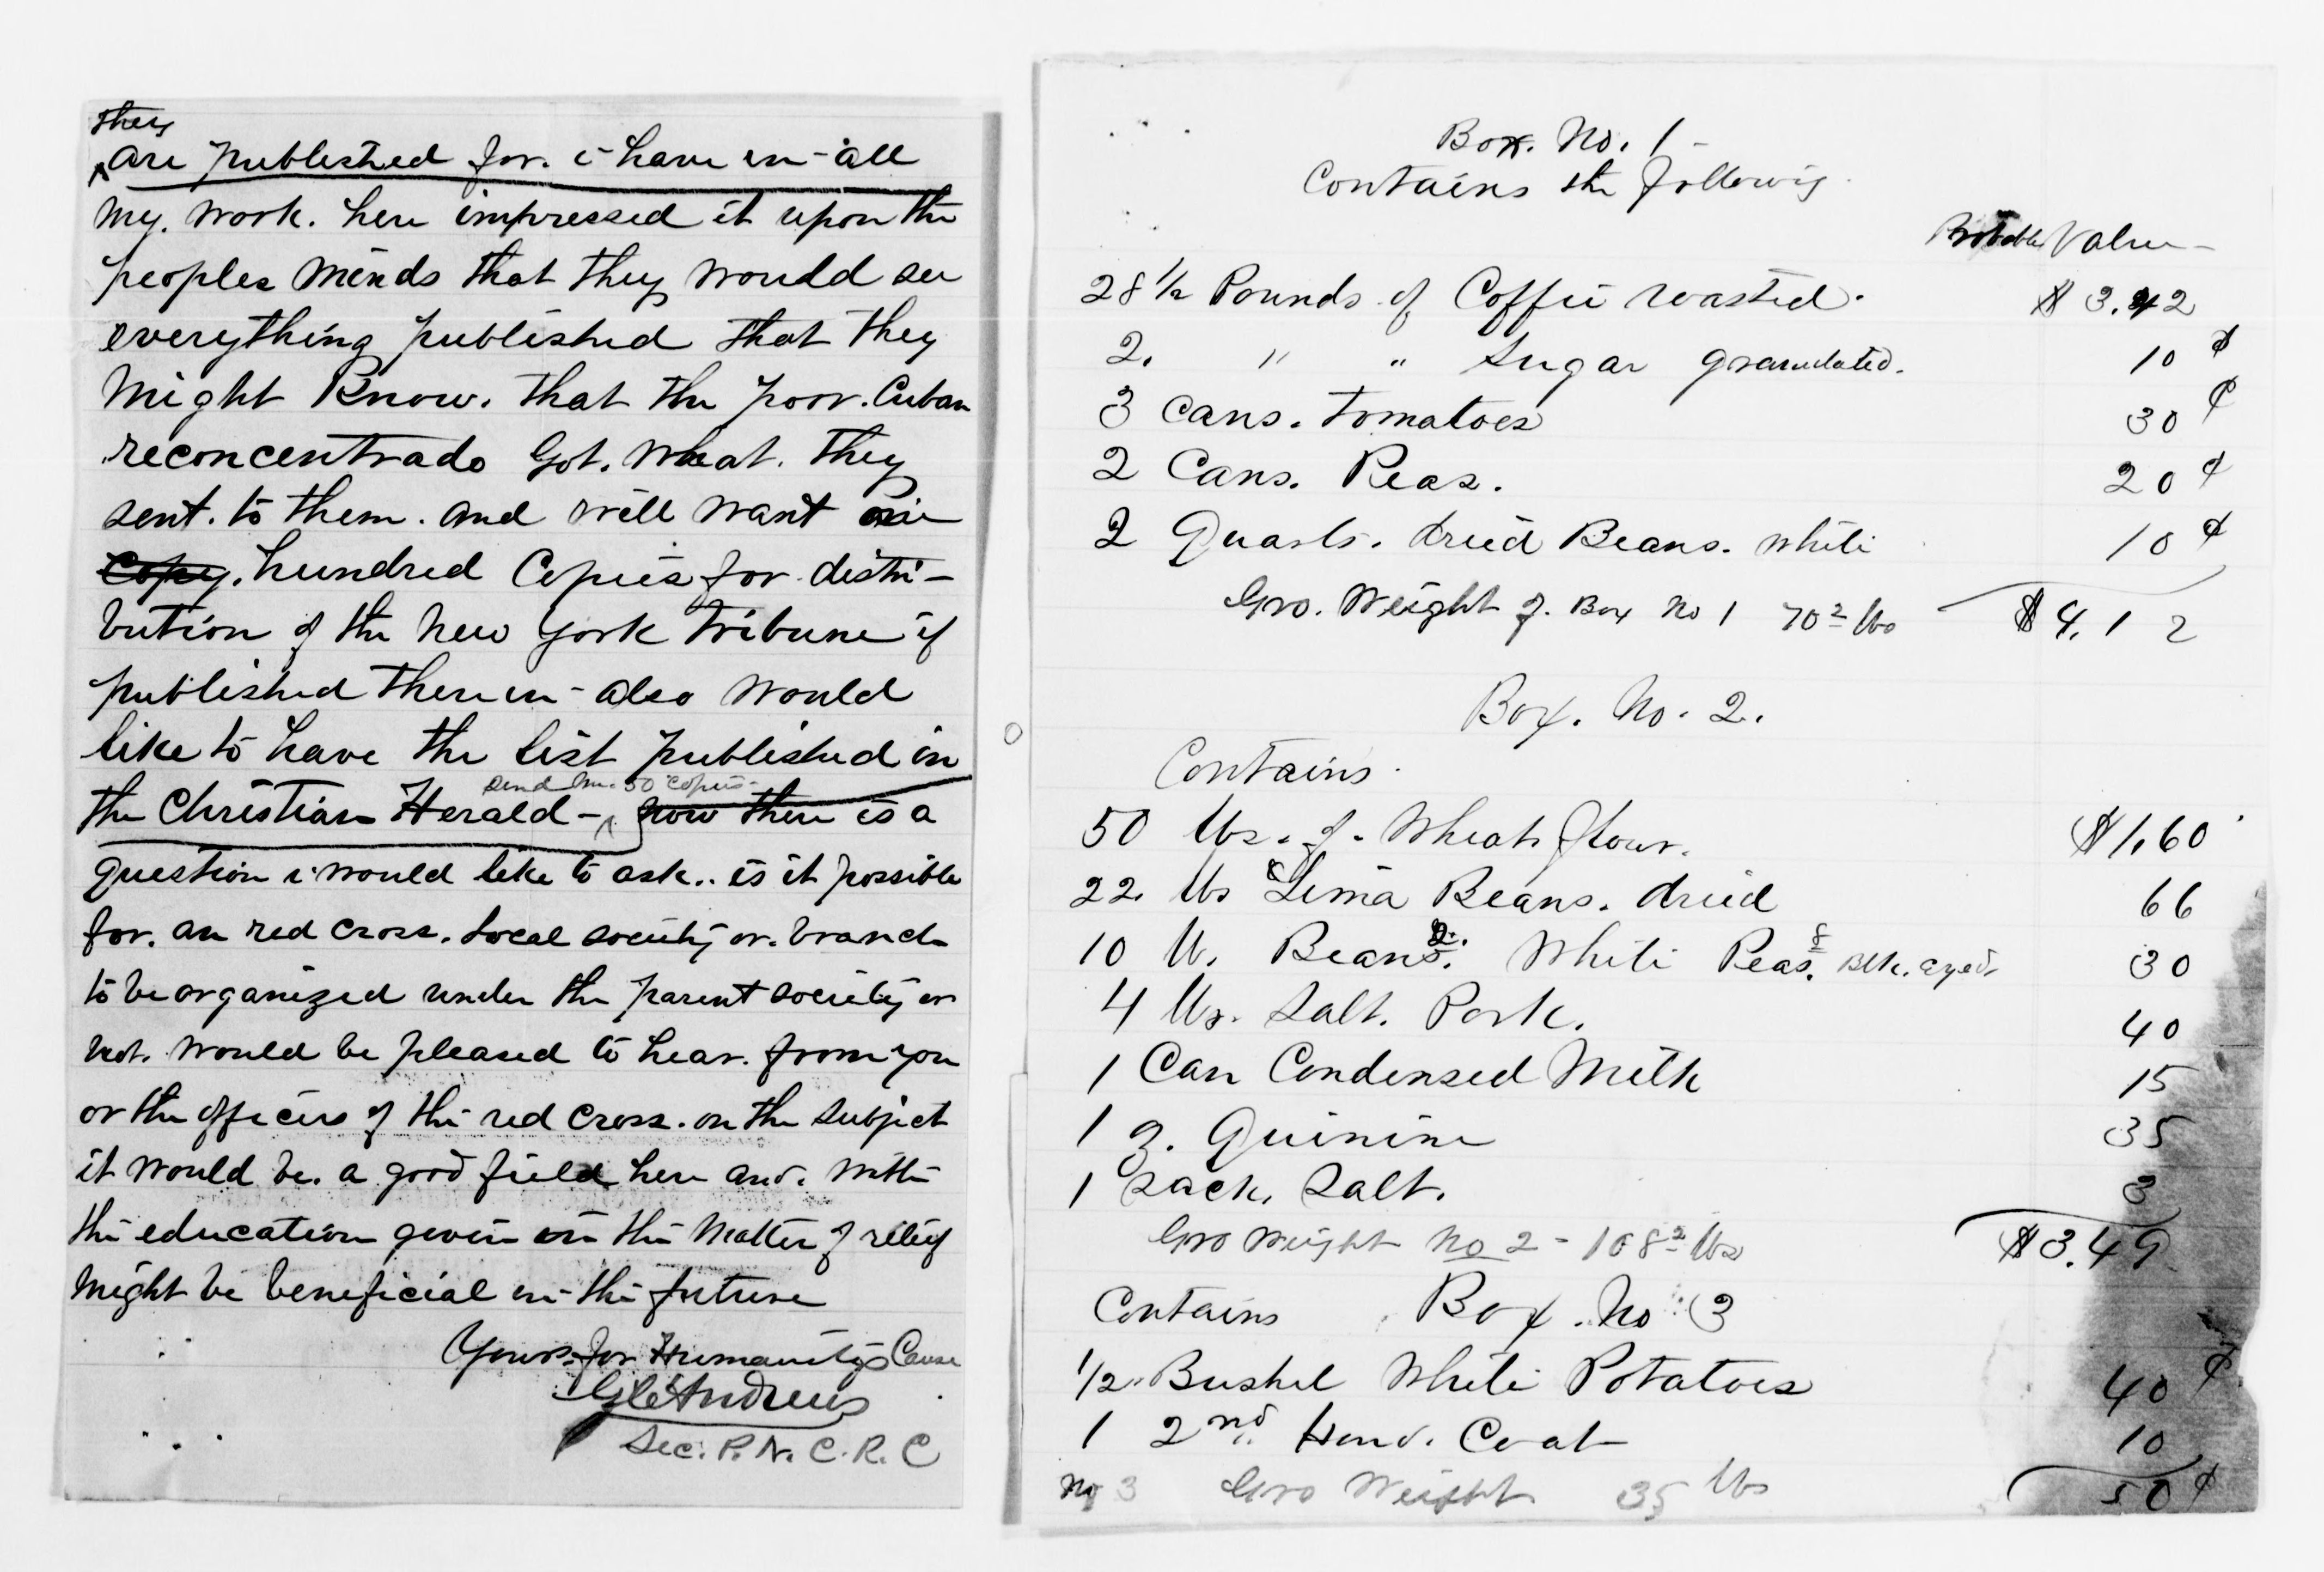 they
are published for. i have in-all
My. work. here impressed it upon the
peoples minds that they would see
everything published that they
might Know. that the poor. Cuban
reconcentrado Got. what. they
sent. to them. and will want one
Copy. hundred Copies for distri-
bution of the New York Tribune if
published therein - also would
like to have the list published in
send me. 50 copies -
the Christian Herald - now there is a
question i would like to ask.. is it possible
for. an red cross. Local society or. branch
to be organized under the parent society or
not. would be pleased to hear. from you
or the officers of the red cross. on the subject
it would be. a good field here and. with
the education given in the Matter of relief
might be beneficial in the future
Yours. for Humanity's Cause
G C Andrews
Sec. P. N. C. R. C
Box. No. 1 -
Contains the following.
Probable Value -
28 1/2 Pounds of Coffee roasted. $ 3.42
2. " " Sugar granulated. 10 ¢
3 Cans. Tomatoes 30 ¢
2 Cans. Peas. 20 ¢
2 Quarts. dried Beans. white 10 ¢
Gro. Weight of. Box No 1 70 2 lbs $4.12
Box. No. 2.
Contains.
50 lbs. of. Wheat flour. $1.60
22. lbs Lima Beans. dried 66
10 lb. Beans 2. White Peas. 8 Blk. eyed. 30
4 lbs. Salt. Pork. 40
1 Can Condensed Milk 15
1 z. Quinine 35
1 sack. Salt. 3
Gro Weight No 2 - 108 2 lbs $3.49
Contains Box. No 3
1/2. Bushel White Potatoes 40 ¢
1 2nd. Hand. Coat 10
No 3 Gro Weight 35 lbs 50 ¢